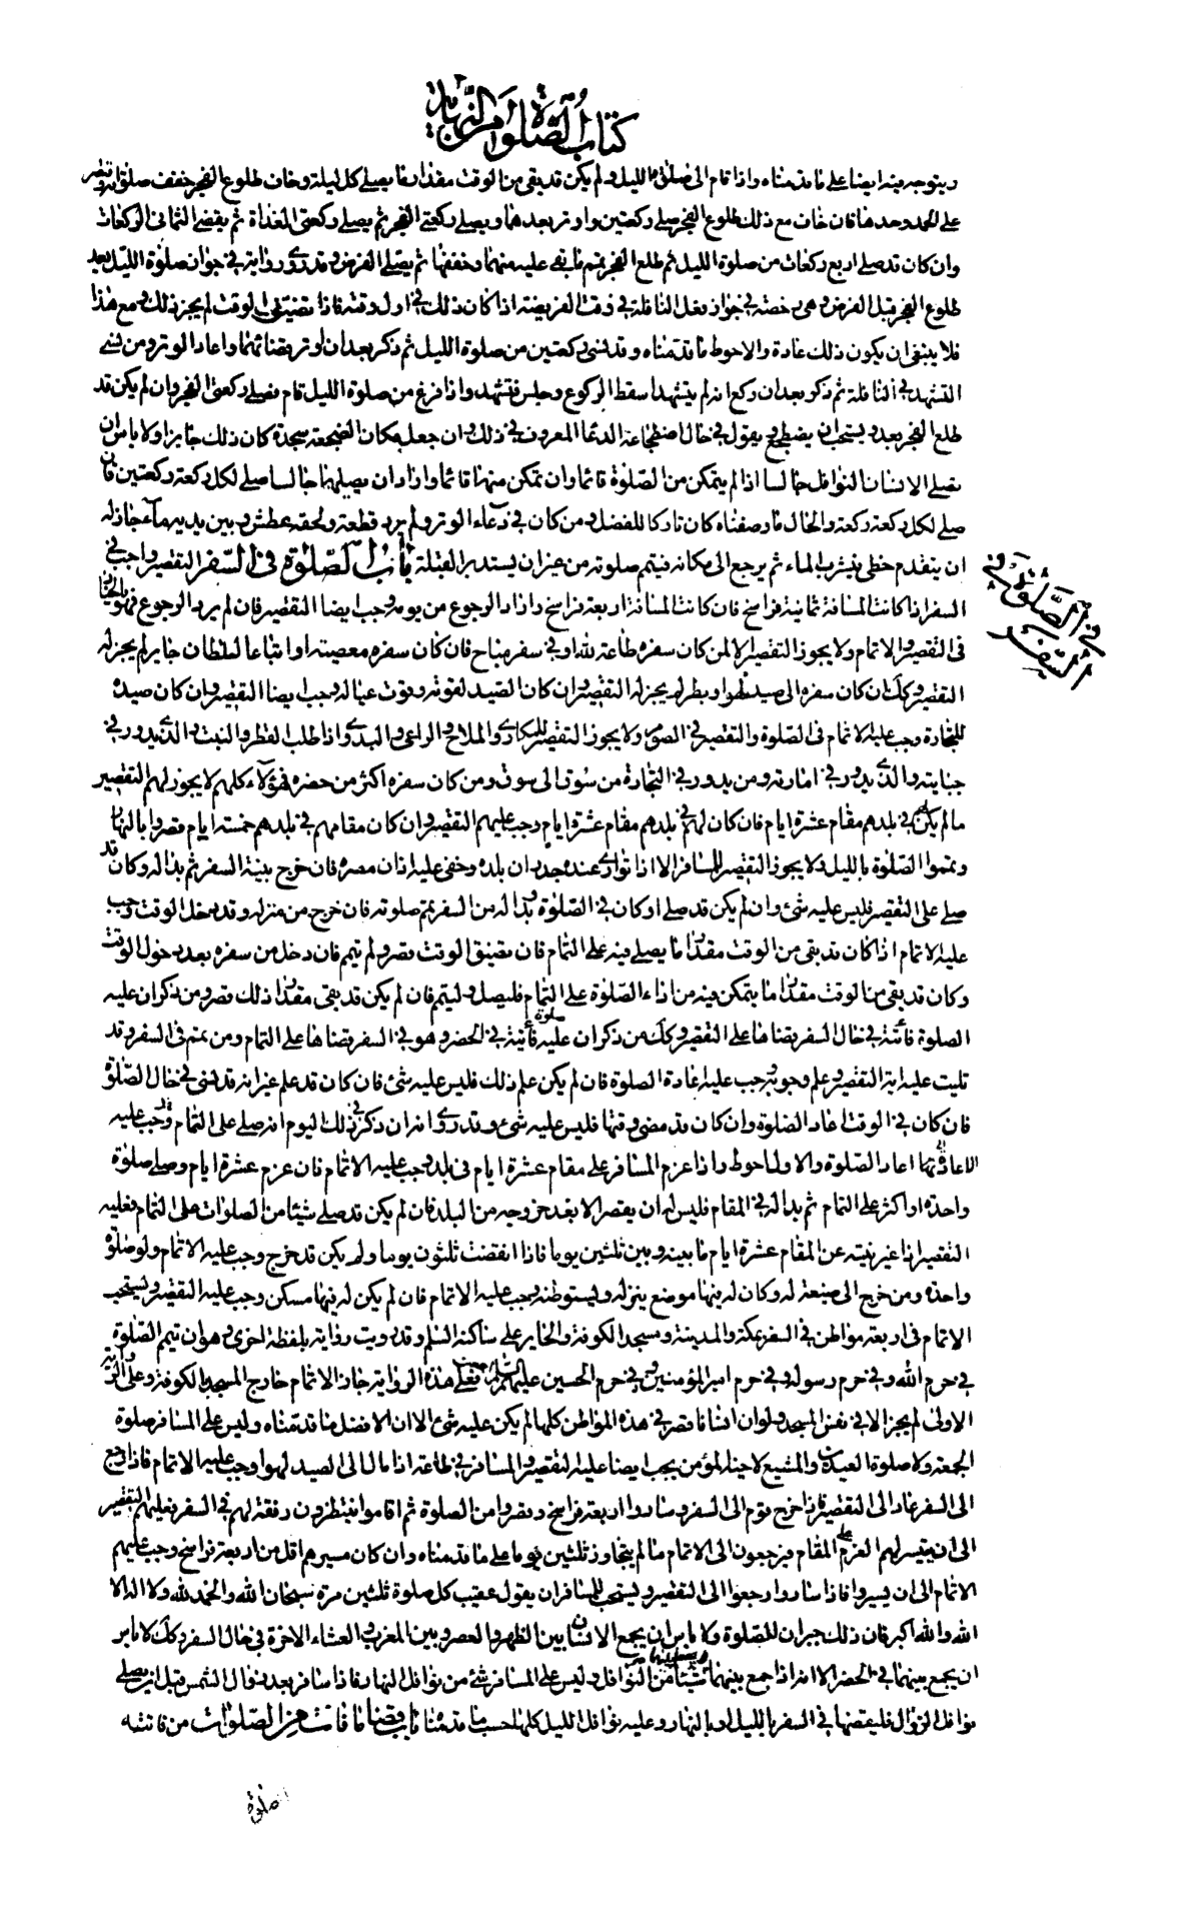 كتاب الصلوة من النهاية
ويتوجه فيه ايضا على ما قدمناه واذا قام الى صلوة الليل ولم يكن قد بقى من الوقت مقدار ما يصلى كل ليلة وخاف طلوع الفجر خفف صلوته واقتصر
على الحمد وحدها فان خاف مع ذلك طلوع الفجر صلى ركعتين واوتر بعدهما ويصلى ركعتى الفجر ثم يصلى ركعتى الغداة ثم يقضى الثمانى الركعات
وان كان قد صلى اربع ركعات من صلوة الليل ثم طلع الفجر تمم ما بقى عليه منهما وخففها ثم يصلى الفرض وقد روى رواية فى جواز صلوة الليل بعد
طلوع الفجر قبل الفرض وهى رخصة فى جواز فعل النافلة فى وقت الفريضة اذا كان ذلك فى اول وقته فاذا تضيق الوقت لم يجز ذلك ومع هذا
فلا ينبغى ان يكون ذلك عادة والاحوط ما قدمناه وقد نسى ركعتين من صلوة الليل ثم ذكر بعد ان اوتر قضاهما واعاد الوتر ومن نسى
التشهد فى النافلة ثم ذكر بعد ان ركع انه لم يتشهد اسقط الركوع وجلس فتشهد واذا فرغ من صلوة الليل قام فصلى ركعتى الفجر وان لم يكن قد
طلع الفجر بعد ويستحب ان يضطجع ويقول فى حال اضطجاعه الدعا المعروف فى ذلك وان جعل مكان الضجعة سجدة كان ذلك جايزا ولا باس ان
يصلى الانسان النوافل جالسا اذا لم يتمكن من الصلوة قائما وان تمكن منها قائما واراد ان يصليها جالسا صلى لكل ركعة ركعتين فان
صلى لكل ركعة ركعة والحال ما وصفناه كان تاركا للفضل ومن كان فى دعاء الوتر ولم يرد قطعه ولحقه عطش وبين يديه ماء جاز له
ان يتقدم خطى فيشرب الماء ثم يرجع الى مكانه فيتم صلوته من غير ان يستدبر القبلة باب الصلوة فى السفر التقصير واجب فى
السفر اذا كانت المسافة ثمانية فراسخ فان كانت المسافة اربعة فراسخ واراد الرجوع من يومه وجب ايضا التقصير فان لم يرد الرجوع فهو بالخيار
فى التقصير والاتمام ولا يجوز التقصير الا لمن كان سفره طاعة لله او فى سفر مباح فان كان سفره معصية او اتباعا لسلطان جاير لم يجز له
التقصير وكك ان كان سفره الى صيد لهوا وبطرا لم يجز له التقصير وان كان الصيد لقوته وقوت عياله وجب ايضا التقصير وان كان صيده
للتجارة وجب عليه الاتمام فى الصلوة والتقصير فى الصوم ولا يجوز التقصير للمكارى والملاح والراعى والبدوى اذا طلب القطر والنبت والذى يدور فى
جبايته والذى يدور فى امارته ومن يدور فى التجارة من سوق الى سوق ومن كان سفره اكثر من حضره فهؤلاء كلهم لا يجوز لهم التقصير
ما لم يكن لهم فى بلدهم مقام عشرة ايام فان كان لهم فى بلدهم مقام عشرة ايام وجب عليهم التقصير وان كان مقامهم فى بلدهم خمسة ايام قصروا بالنهار
وتمموا الصلوة بالليل ولا يجوز التقصير للمسافر الا اذا توارى عنده جدران بلده وخفى عليه اذان مصره فان خرج بنية السفر ثم بدا له وكان قد
صلى على التقصير فليس عليه شئ وان لم يكن قد صلى او كان فى الصلوة وبدا له من السفر يتم صلوته فان خرج من منزله وقد دخل الوقت وجب
عليه الاتمام اذا كان قد بقى من الوقت مقدار ما يصلى فيه على التمام فان تضيق الوقت قصر ولم يتم فان دخل من سفره بعد دخول الوقت
وكان قد بقى من الوقت مقدار ما يتمكن فيه من اداء الصلوة على التمام فليصل وليتم فان لم يكن قد بقى مقدار ذلك قصر ومن ذكر ان عليه
الصلوة فائتة فى حال السفر قضاها على التقصير وكك من ذكر ان عليه صلوة فائتة فى الحضر وهو فى السفر قضاها على التمام ومن تمم فى السفر وقد
تليت عليه اية التقصير وعلم وجوبه وجب عليه اعادة الصلوة فان لم يكن علم ذلك فليس عليه شئ فان كان قد علم غير انه قد نسى فى حال الصلوة
فان كان فى الوقت اعاد الصلوة وان كان قد مضى وقتها فليس عليه شئ وقد روى انه ان ذكر فى ذلك اليوم انه صلى على التمام وجب عليه
الاعادة اعاد الصلوة والاول احوط واذا عزم المسافر على مقام عشرة ايام فى بلد وجب عليه الاتمام فان عزم عشرة ايام وصلى صلوة
واحدة او اكثر على التمام ثم بدا له فى المقام فليس له ان يقصر الا بعد خروجه من البلد فان لم يكن قد صلى شيئا من الصلوات على التمام فعليه
التقصير اذا غير نيته عن المقام عشرة ايام ما بينه وبين ثلثين يوما فاذا انقضت ثلثون يوما ولم يكن قد خرج وجب عليه الاتمام ولو صلوة
واحدة ومن خرج الى ضيعة له وكان له فيها موضع ينزله ويستوطنه وجب عليه الاتمام فان لم يكن له فيها مسكن وجب عليه التقصير ويستحب
الاتمام فى اربعة مواطن فى السفر بمكة والمدينة ومسجد الكوفة والحاير على ساكنه السلم وقد رويت رواية بلفظة اخرى وهو ان يتم الصلوة
فى حرم الله وفى حرم رسوله وفى حرم امير المؤمنين وفى حرم الحسين عليهم السلم فعلى هذه الرواية جاز الاتمام خارج المسجد بالكوفة وعلى الرواية
الاولى لم يجز الا فى نفس المسجد ولو ان انسانا قصر فى هذه المواطن كلها لم يكن عليه شئ الا ان الافضل ما قدمناه وليس على المسافر صلوة
الجمعة ولا صلوة العيدين والمشيع لاخيه المؤمن يجب ايضا عليه التقصير والمسافر فى طاعة اذا مال الى الصيد لهوا وجب عليه الاتمام فاذا رجع
الى السفر عاد الى التقصير فاذا خرج قوم الى السفر وساروا اربعة فراسخ وقصروا من الصلوة ثم اقاموا ينتظرون رفقة لهم فى السفر فعليهم التقصير
الى ان يتيسر لهم العزم على المقام فيرجعون الى الاتمام ما لم يتجاوز ثلثين يوما على ما قدمناه وان كان مسيرهم اقل من اربعة فراسخ وجب عليهم
الاتمام الى ان يسيروا فاذا ساروا رجعوا الى التقصير ويستحب للمسافر ان يقول عقيب كل صلوة ثلثين مرة سبحان الله والحمد لله ولا اله الا
الله والله اكبر فان ذلك جبران للصلوة ولا باس ان يجمع الانسان بين الظهر والعصر وبين المغرب والعشاء الاخرة فى حال السفر وكك لا باس
ان يجمع بينهما فى الحضر الا انه اذا جمع بينهما شيئا من النوافل وليس على المسافر شئ من نوافل النهار فاذا سافر بعد زوال الشمس قبل ان يصلى
نوافل الزوال فليقضها فى السفر بالليل او بالنهار وعليه نوافل الليل كلها حسب ما قدمناه باب قضا ما فات من الصلوات من فاتته
فى الصلوة فى
السفر
صلوة